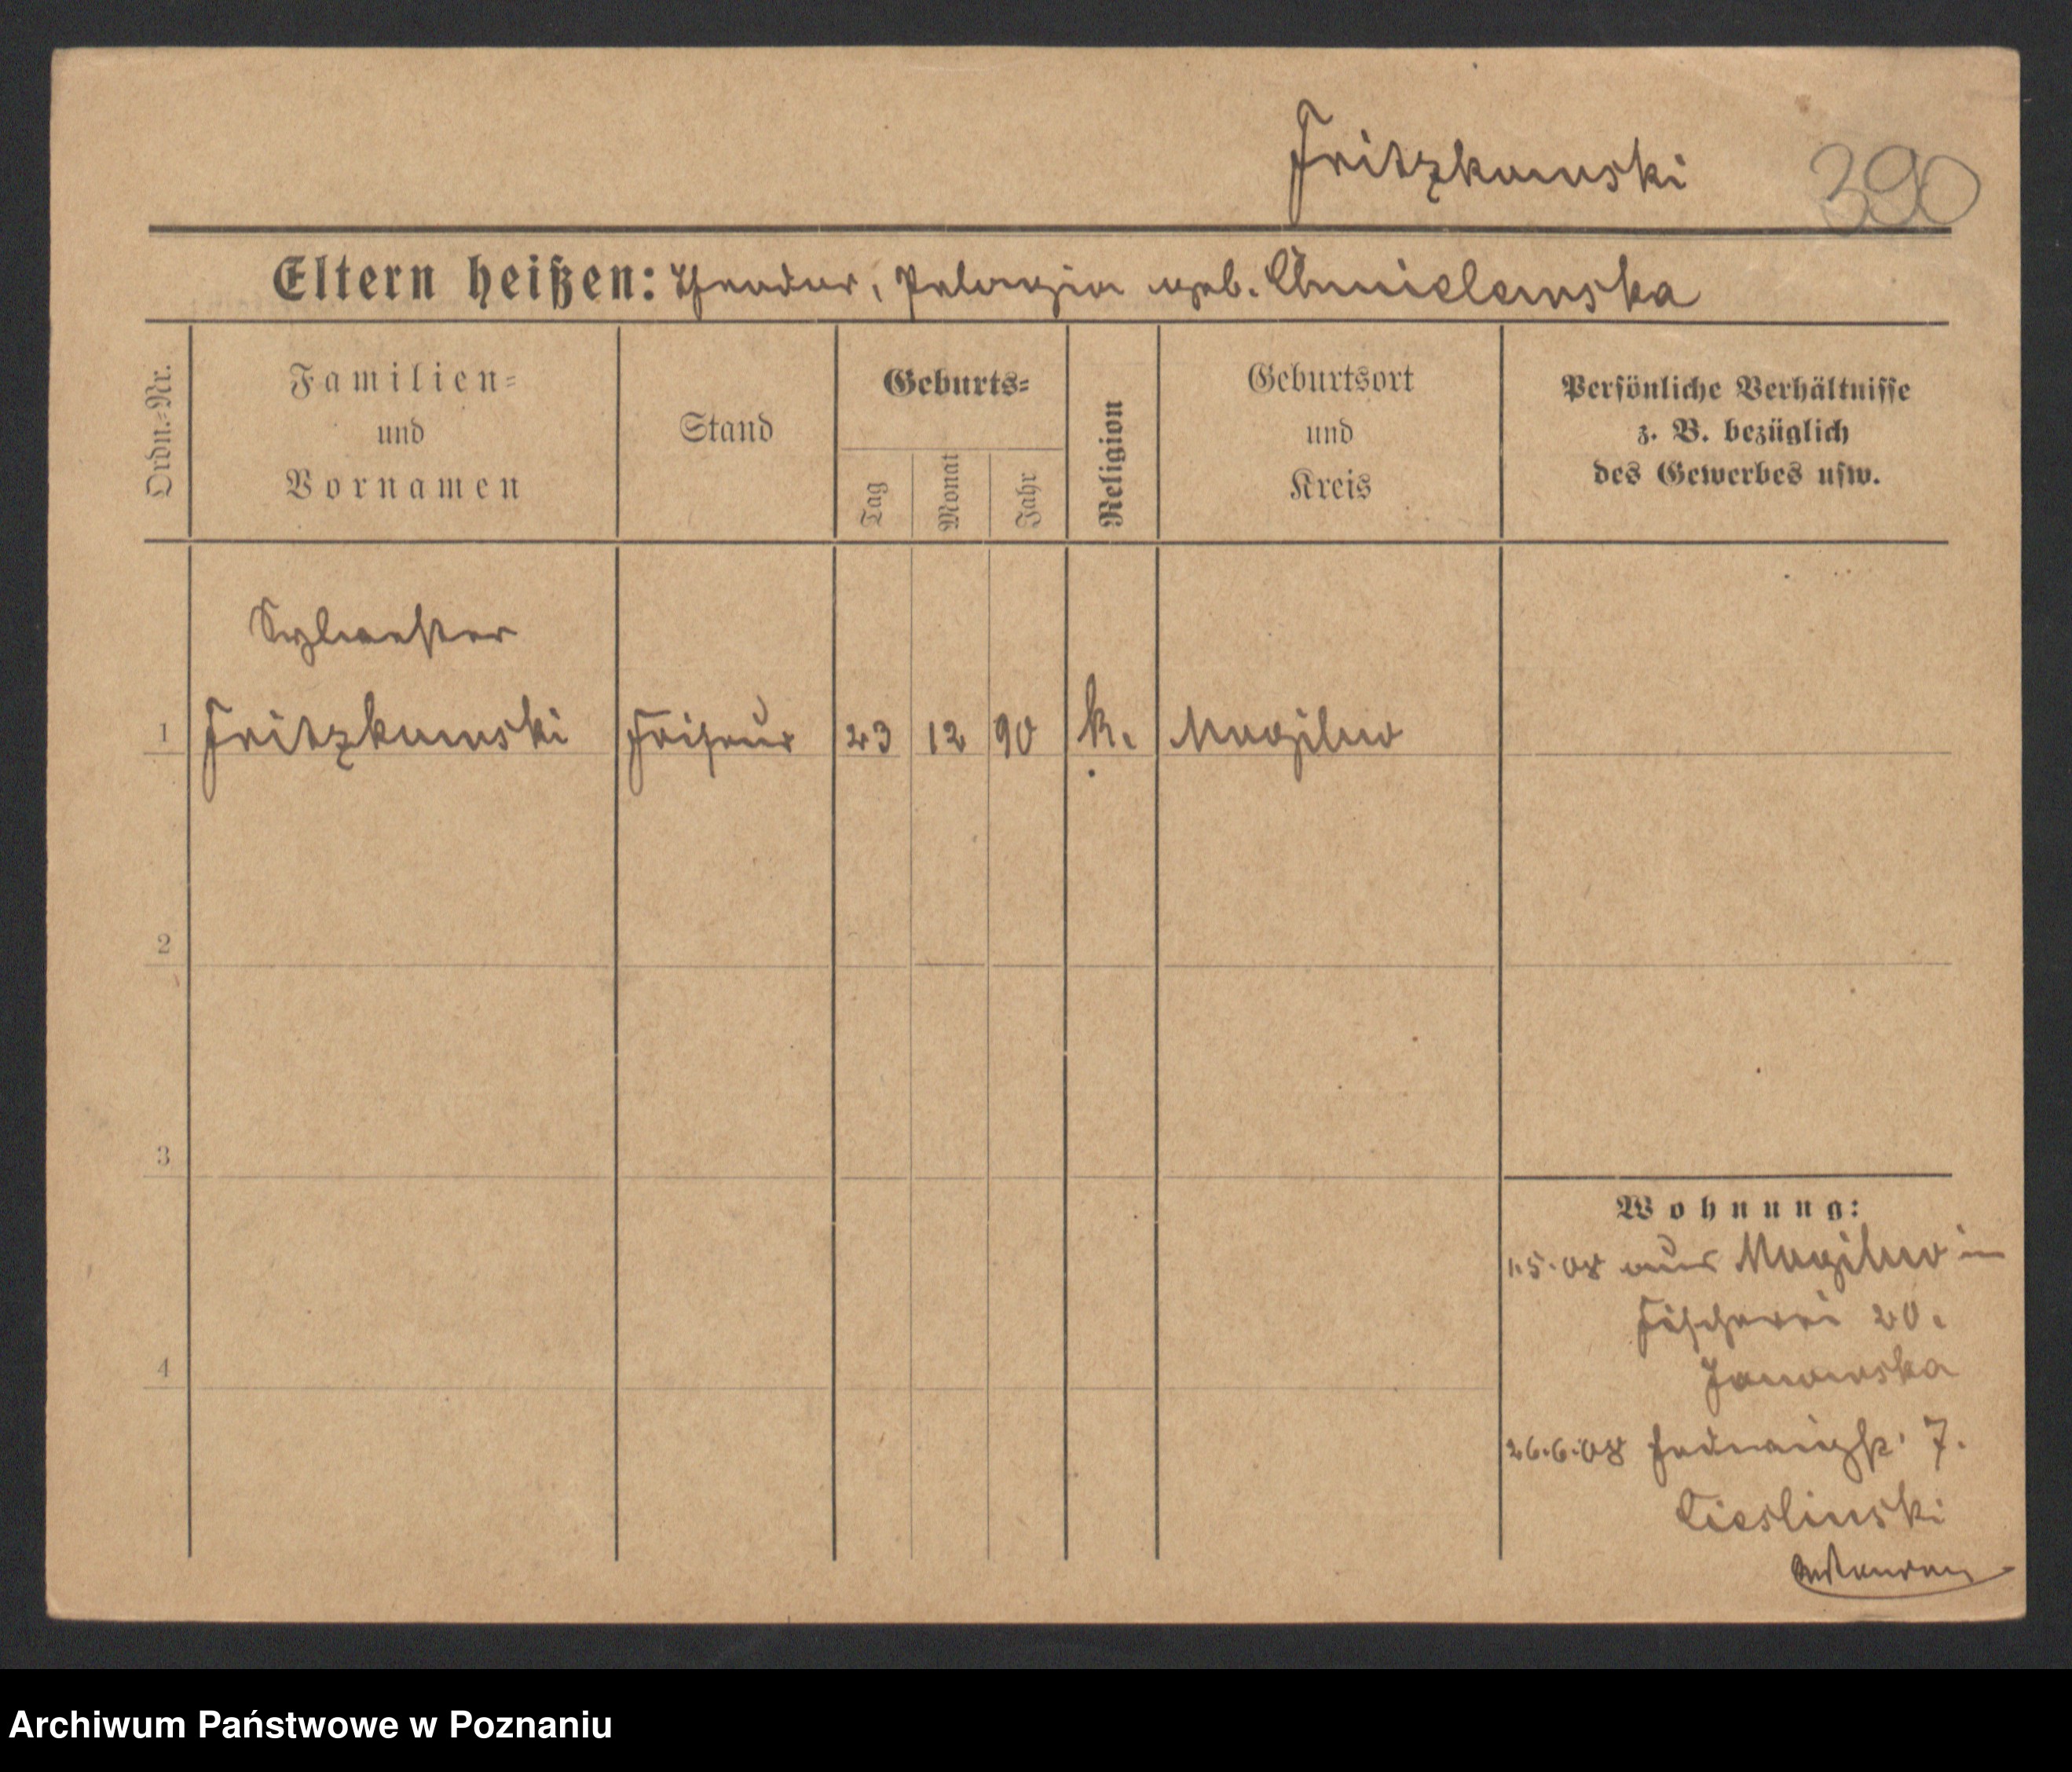 Fritzkowski 390
Eltern heißen: Theodor, Pelagia geb. Chmielewska
Ordn.-Nr.
Familien-
und
Vornamen
Stand
Geburts-
Tag
Monat
Jahr
Religion
Geburtsort
und
Kreis
Persönliche Verhältnisse
z. B. bezüglich
des Gewerbes usw.
Sylwester
1 Fritzkowski Friseur 23 12 90 k. Mogilno
2
3
4
Wohnung:
1.5.08 aus Mogilno in
Fischerei 20.
Janowska
26.6.08 Hedwigstr. 7.
Cieslinski
Archiwum Państwowe w Poznaniu